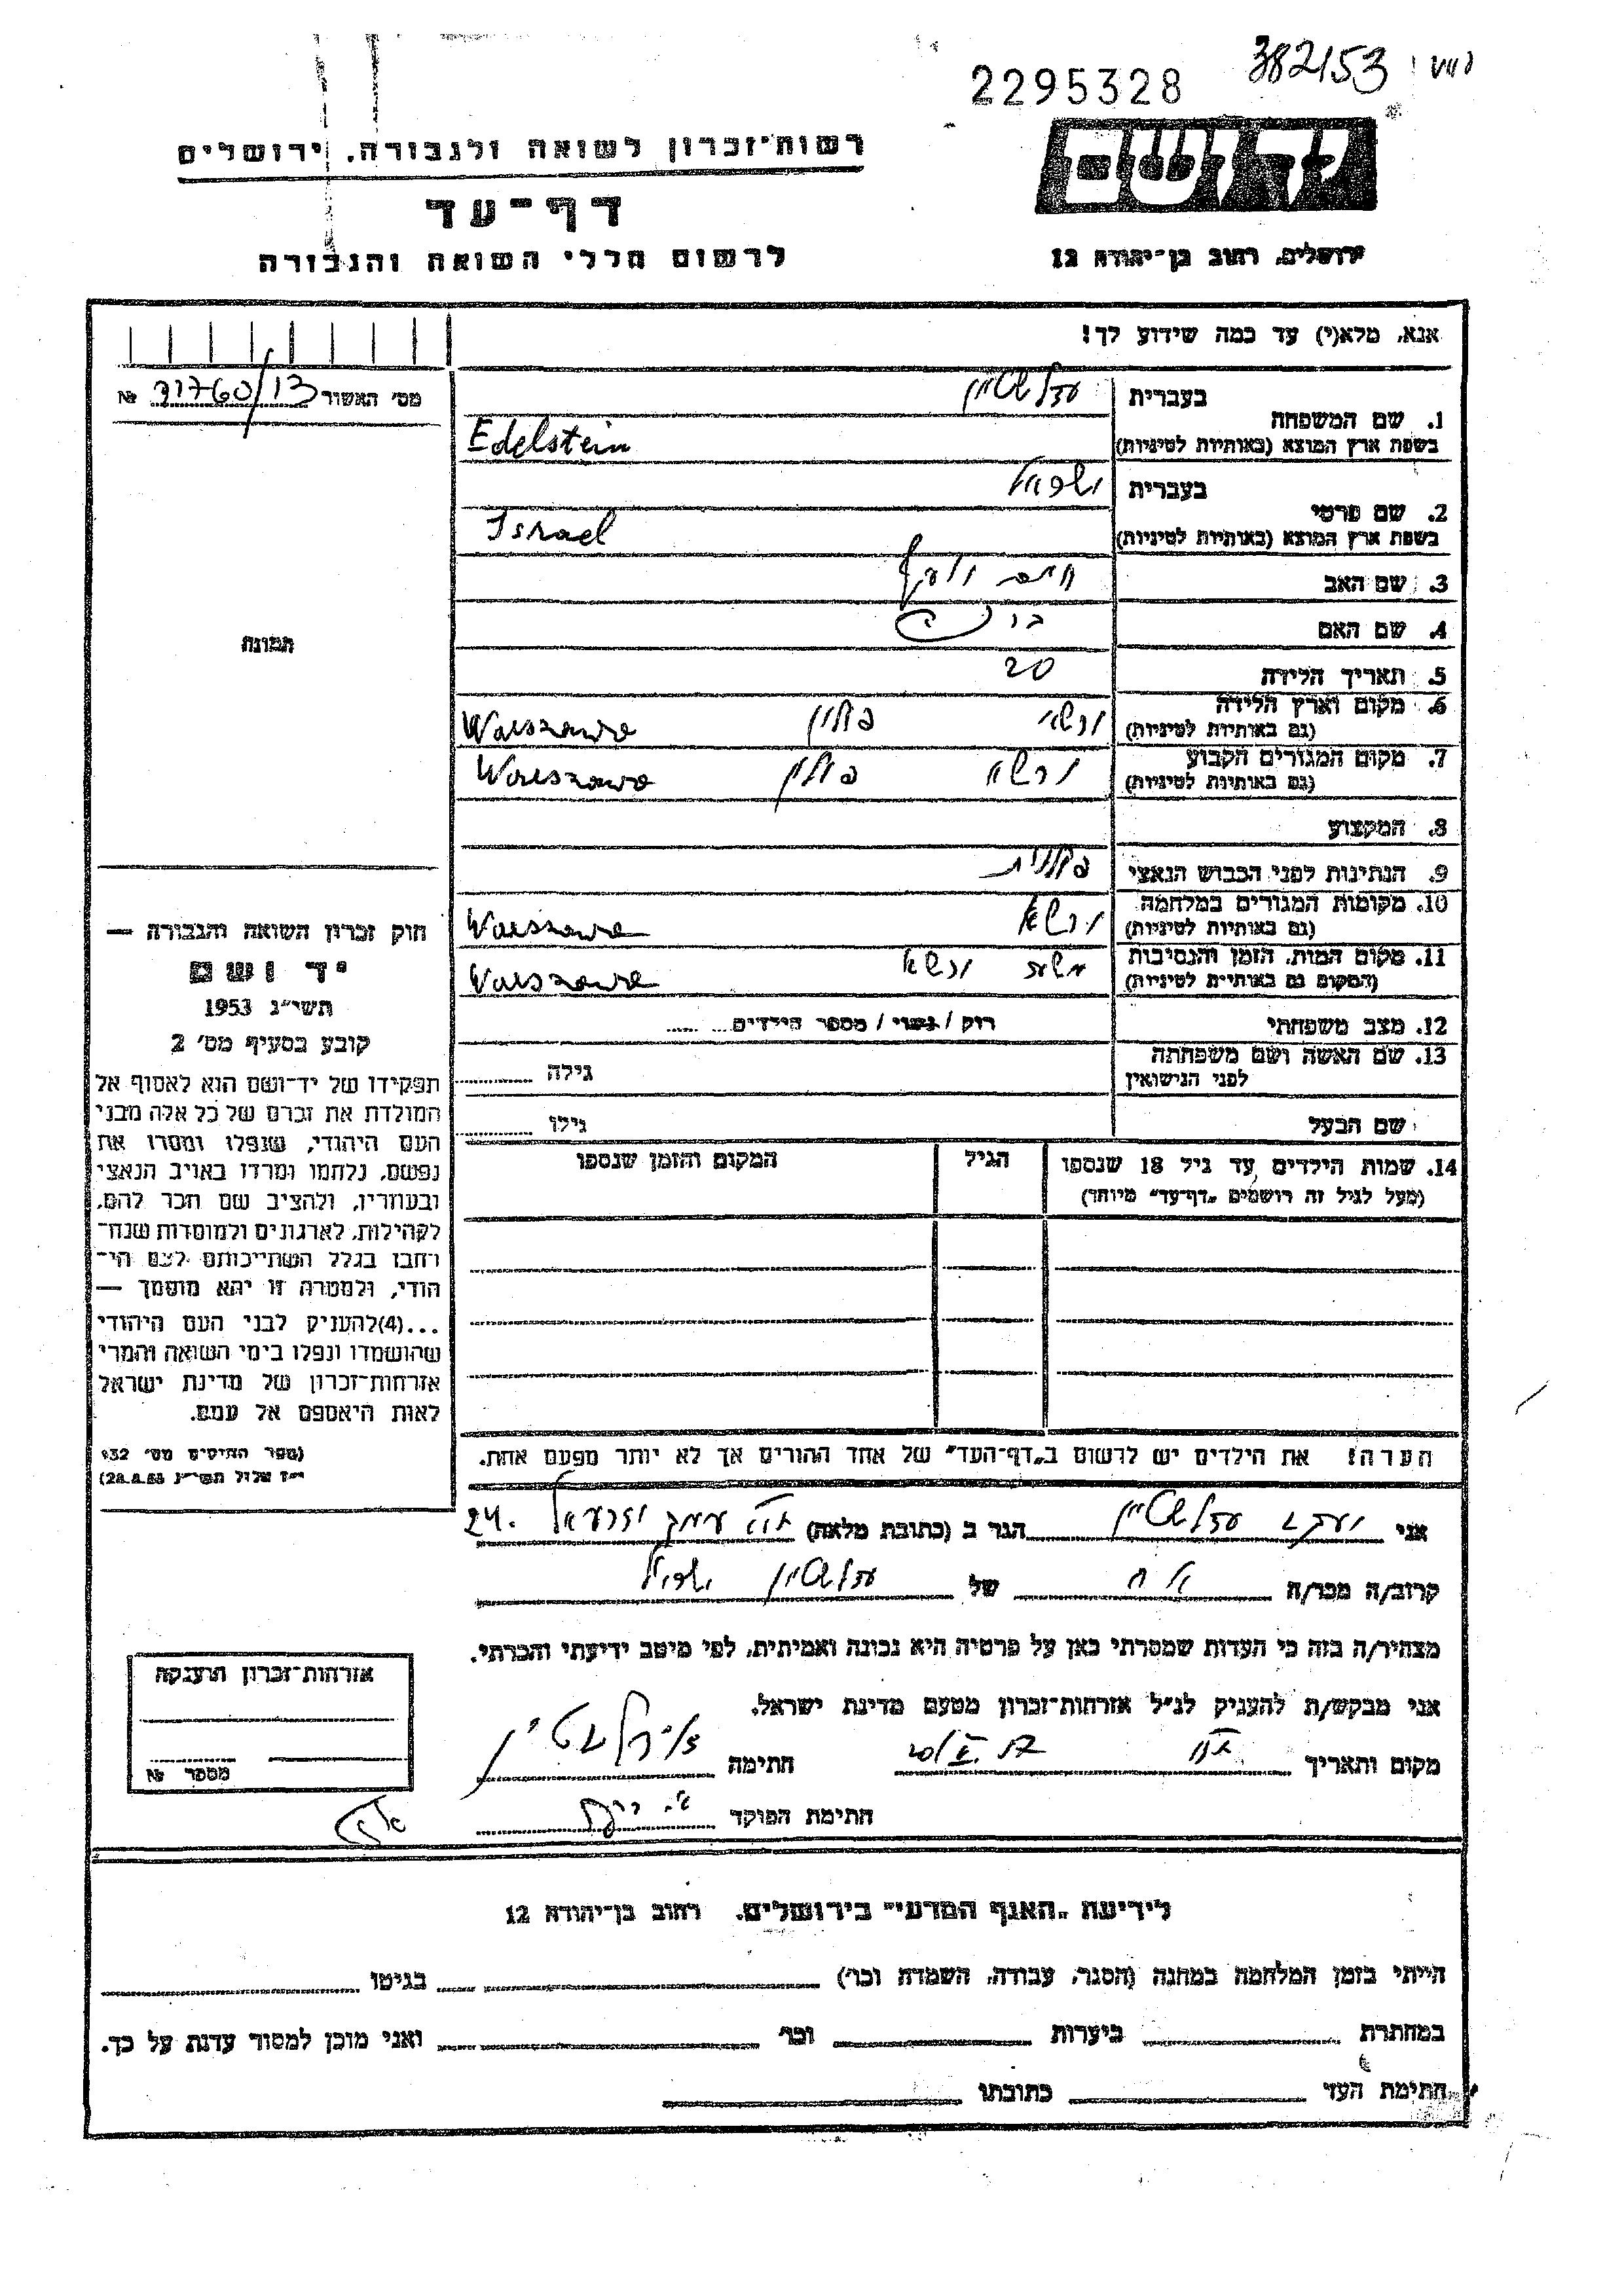 2295328 382153
רשות־זכרון לשואה ולגבורה, ירושלים
יד ושם
דף־עד
לרשום חללי השואה והגבורה
ירושלים, רחוב בן־יהודה 12
אנא, מלא(י) עד כמה שידוע לך!
מס' האשור 91760/13 №
1. שם המשפחה
בעברית עדלשטיין
בשפת ארץ המוצא (באותיות לטיניות) Edelstein
2. שם פרטי
בעברית ישראל
בשפת ארץ המוצא (באותיות לטיניות) Israel
3. שם האב חיים
4. שם האם
5. תאריך הלידה 20
6. מקום וארץ הלידה (גם באותיות לטיניות) ורשא פולין Warszawa
7. מקום המגורים הקבוע (גם באותיות לטיניות) ורשא פולין Warszawa
8. המקצוע
9. הנתינות לפני הכבוש הנאצי פולנית
10. מקומות המגורים במלחמה (גם באותיות לטיניות) ורשא Warszawa
11. מקום המות, הזמן והנסיבות (המקום גם באותיות לטיניות) ורשא Warszawa
12. מצב משפחתי רוק / נשוי / מספר הילדים
13. שם האשה ושם משפחתה לפני הנישואין גילה
שם הבעל גילו
14. שמות הילדים עד גיל 18 שנספו
(מעל לגיל זה רושמים „דף־עד" מיוחד)
הגיל
המקום והזמן שנספו
תמונה
חוק זכרון השואה והגבורה —
יד ושם
תשי"ג 1953
קובע בסעיף מס' 2
תפקידו של יד־ושם הוא לאסוף אל
המולדת את זכרם של כל אלה מבני
העם היהודי, שנפלו ומסרו את
נפשם, נלחמו ומרדו באויב הנאצי
ובעוזריו, ולהציב שם וזכר להם,
לקהילות, לארגונים ולמוסדות שנח־
רחבו בגלל השתייכותם לעם הי־
הודי, ולמטרה זו יהא מוסמך —
...(4)להעניק לבני העם היהודי
שהושמדו ונפלו בימי השואה והמרי
אזרחות־זכרון של מדינת ישראל
לאות היאספם אל עמם.
(ספר החוקים מס' 132
י"ז אלול תשי"ג 28.8.53)
הערה! את הילדים יש לרשום ב„דף־העד" של אחד ההורים אך לא יותר מפעם אחת.
אני יעקב עדלשטיין הגר ב (כתובת מלאה) עמק יזרעאל 24.
קרוב/ה מכר/ה אח של עדלשטיין ישראל
מצהיר/ה בזה כי העדות שמסרתי כאן על פרטיה היא נכונה ואמיתית, לפי מיטב ידיעתי והכרתי.
אני מבקש/ת להעניק לנ"ל אזרחות־זכרון מטעם מדינת ישראל.
מקום ותאריך חתימה
חתימת הפוקד
אזרחות־זכרון הוענקה
מספר №
לידיעת „האגף המדעי" בירושלים, רחוב בן־יהודה 12
הייתי בזמן המלחמה במחנה (הסגר, עבודה, השמדה וכו') בגיטו
במחתרת ביערות וכו' ואני מוכן למסור עדות על כך.
חתימת העד כתובתו